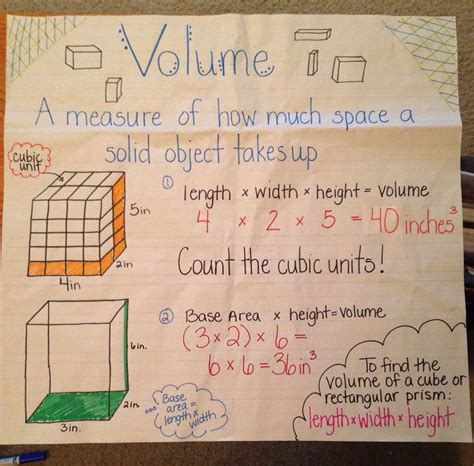 Volume
A measure of how much space a
solid object takes up
cubic
unit
5in
2in
4in
① length × width × height = volume
4 × 2 × 5 = 40 inches³
Count the cubic units!
6in.
2in.
3in.
② Base Area × height=volume
(3×2) × 6 =
6 × 6 = 36in³
Base
area =
length×
width
To find the
volume of a cube or
rectangular prism:
length×width×height